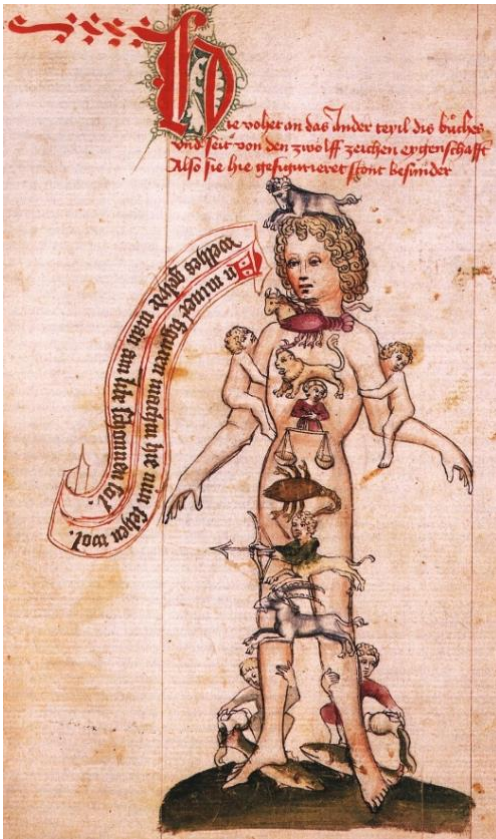 Hie vohet an das ander teyil dis bůches
vnd seit von den zwoͤlff zeichen eygenschafft
Also sie hie gefigurieret stont besunder
In miner figuren machtu hie nun sehen wol.
welhes gelide man am libe schonnen sol.